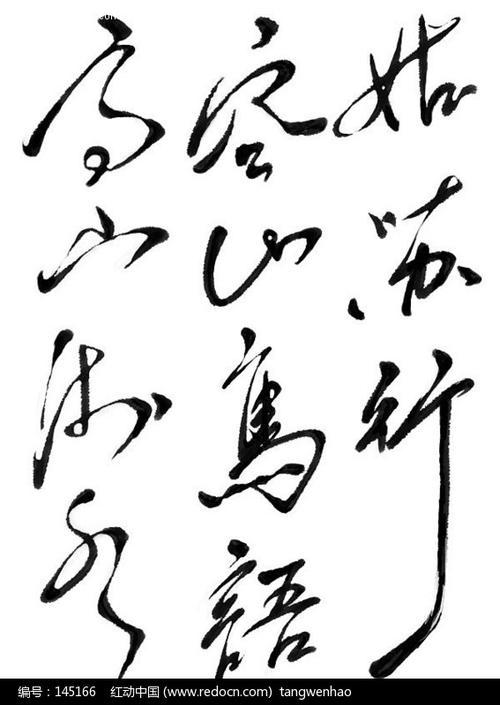 姑苏行
空山鳥語
高山流水
编号：145166 红动中国 (www.redocn.com) tangwenhao